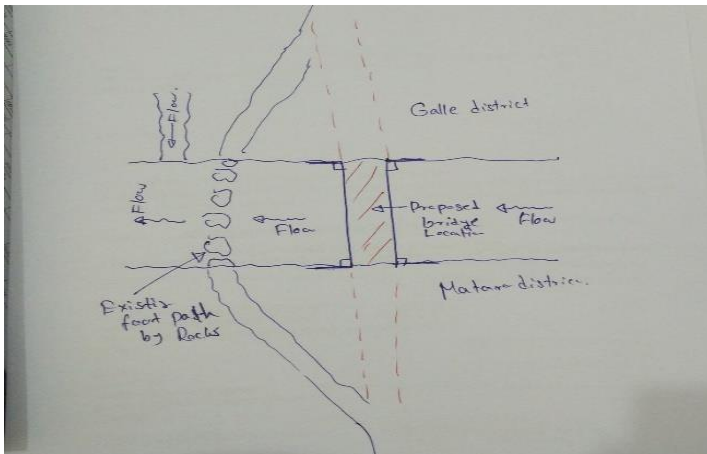 Galle district
Flow.
Flow
Flow
Proposed
bridge
Location
Flow
Matara district.
Existin
foot path
by Rocks